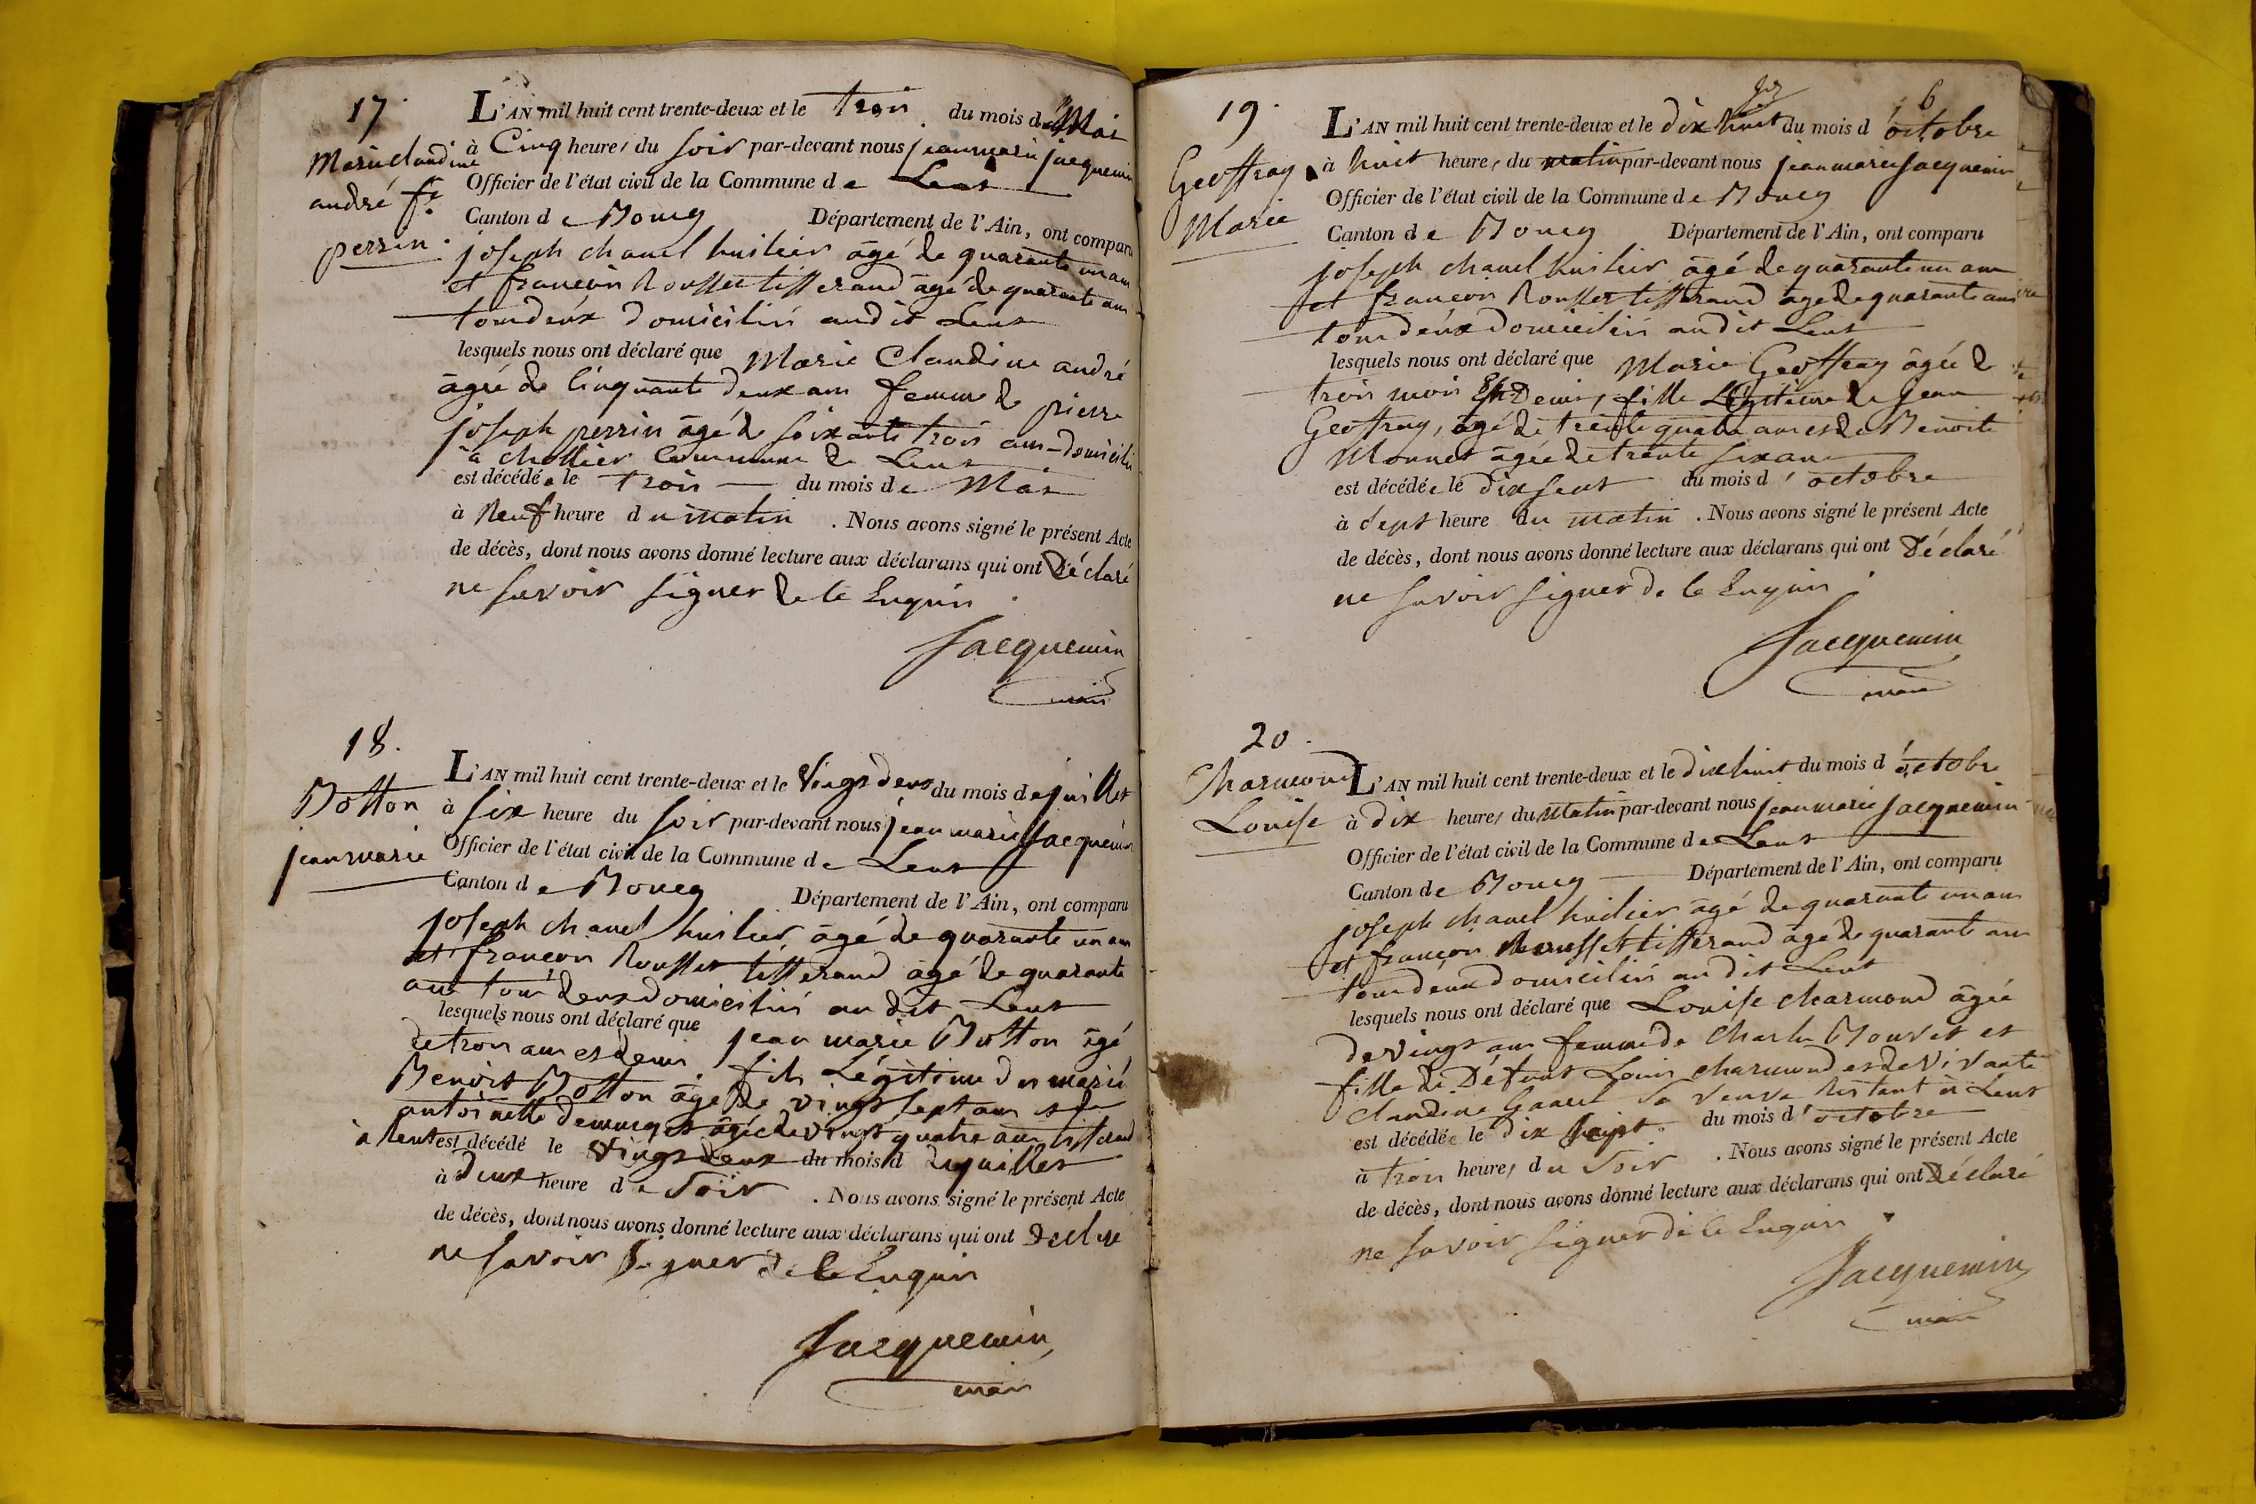 17.
Marie claudine
andré fe.
perrin.
L'AN mil huit cent trente-deux et le trois du mois de Mai
à Cinq heures du soir par-devant nous jean marie jacquemin
Officier de l'état civil de la Commune de Lent
Canton de Bourg Département de l'Ain, ont comparu
joseph chanel huilier âgé de quarante un ans
et françois Rousset tisserand âgé de quarante ans
tous deux domiciliés audit Lent
lesquels nous ont déclaré que Marie Claudine andré
âgée de Cinquante deux ans femme de pierre
joseph perrin âgé de soixante trois ans domicilié
à chollier Commune de Lent
est décédée le trois du mois de Mai
à Neuf heure du matin . Nous avons signé le présent Acte
de décès, dont nous avons donné lecture aux déclarans qui ont Déclaré
ne savoir signer de ce Enquis.
Jacquemin
maire
18.
Botton
jean marie
L'AN mil huit cent trente-deux et le Vingt deux du mois de juillet
à Six heure du soir par-devant nous jean marie Jacquemin
Officier de l'état civil de la Commune de Lent
Canton de Bourg Département de l'Ain, ont comparu
joseph chanel huilier âgé de quarante un ans
et françois Rousset tisserand âgé de quarante
ans tous deux domiciliés au dit Lent
lesquels nous ont déclaré que jean marie Botton âgé
de trois ans et demi, fils Légitime des mariés
Benoit Botton âgé de vingt sept ans et de
antoinette âgée de vingt quatre ans
à Lent est décédé le Vingt deux du mois de juillet
à Deux heure de Soir . Nous avons signé le présent Acte
de décès, dont nous avons donné lecture aux déclarans qui ont Déclaré
ne savoir Signer de ce Enquis
Jacquemin
maire
6
19.
Geoffray
Marie
L'AN mil huit cent trente-deux et le dix huit du mois d'octobre
à huit heures du matin par-devant nous jean marie Jacquemin
Officier de l'état civil de la Commune de Bourg
Canton de Bourg Département de l'Ain, ont comparu
joseph chanel huilier âgé de quarante un ans
et françois Rousset tisserand âgé de quarante ans
tous deux domiciliés au dit Lent
lesquels nous ont déclaré que Marie Geoffray âgée de
trois mois Et Demi, fille Légitime de Jean
Geoffray, âgé de trente quatre ans et de Benoite
Monnet âgée de trente six ans
est décédée le dix sept du mois d'octobre
à sept heure du matin . Nous avons signé le présent Acte
de décès, dont nous avons donné lecture aux déclarans qui ont Déclaré
ne savoir signer de ce Enquis.
Jacquemin
maire
20.
Charmond
Louise
L'AN mil huit cent trente-deux et le dix huit du mois d'octobre
à dix heures du Matin par-devant nous jean marie Jacquemin
Officier de l'état civil de la Commune de Lent
Canton de Bourg Département de l'Ain, ont comparu
joseph chanel huilier âgé de quarante un ans
et françois Rousset tisserand âgé de quarante ans
tous deux domiciliés au dit Lent
lesquels nous ont déclaré que Louise charmond âgée
de vingt ans femme de Charles Bouvet et
fille de Défunt Louis charmond et de Vivante
Claudine sa Veuve Restant à Lent
est décédée le dix sept du mois d'octobre
à trois heures du Soir . Nous avons signé le présent Acte
de décès, dont nous avons donné lecture aux déclarans qui ont Déclaré
ne savoir signer de ce Enquis.
Jacquemin
maire